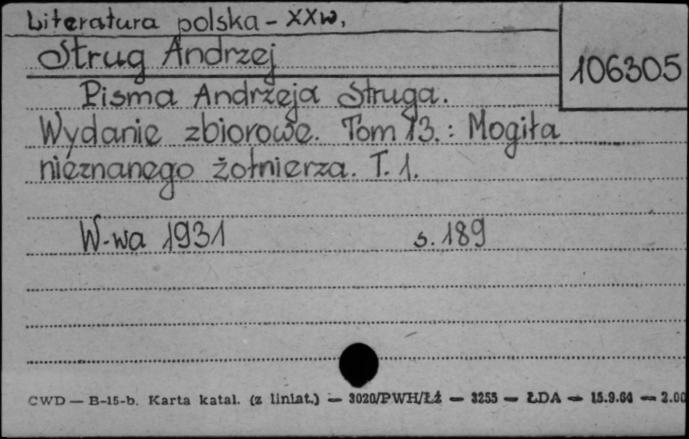 Literatura polska - XXw.
Strug Andrzej
106305
Pisma Andrzeja Struga.
Wydanie zbiorowe. Tom 13.: Mogiła
nieznanego żołnierza. T. 1.
W-wa 1931 s. 189
CWD — B-15-b. Karta katal. (z liniat.) — 3020/PWH/Łź — 3255 — ŁDA — 15.9.64 — 2.00